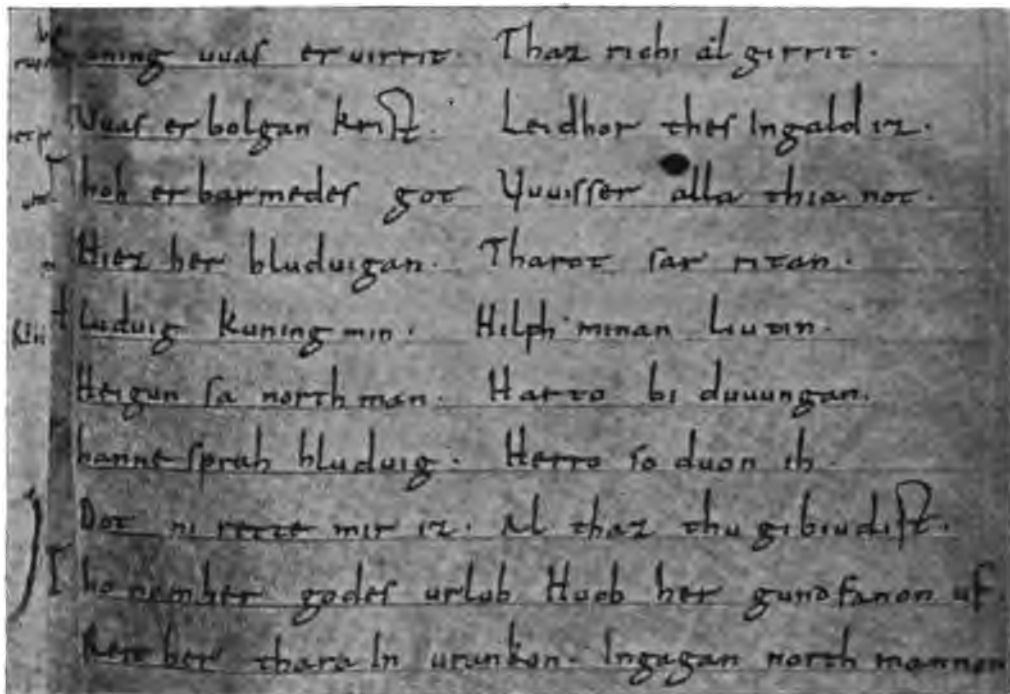 kuning uuaſ eruirrit. Thaz richi al girrit.
Uuaſ erbolgan kriſt. Leidhor theſ Ingald iz.
Thoh erbarmedeſ got Uuuiſſer alla thia not.
Hiez her hluduigan. Tharot ſar ritan.
hluduig kuning min. Hilph minan liutin.
Heigun ſa northman. Harto bi duuungan.
Thanne ſprah hluduig. Herro ſo duon ih.
Dot ni rette mir iz. Al thaz thu gibiudiſt.
Tho nember godeſ urlub Huob her gundfanon uf.
Reit her thara In urankon. Ingagan north mannon